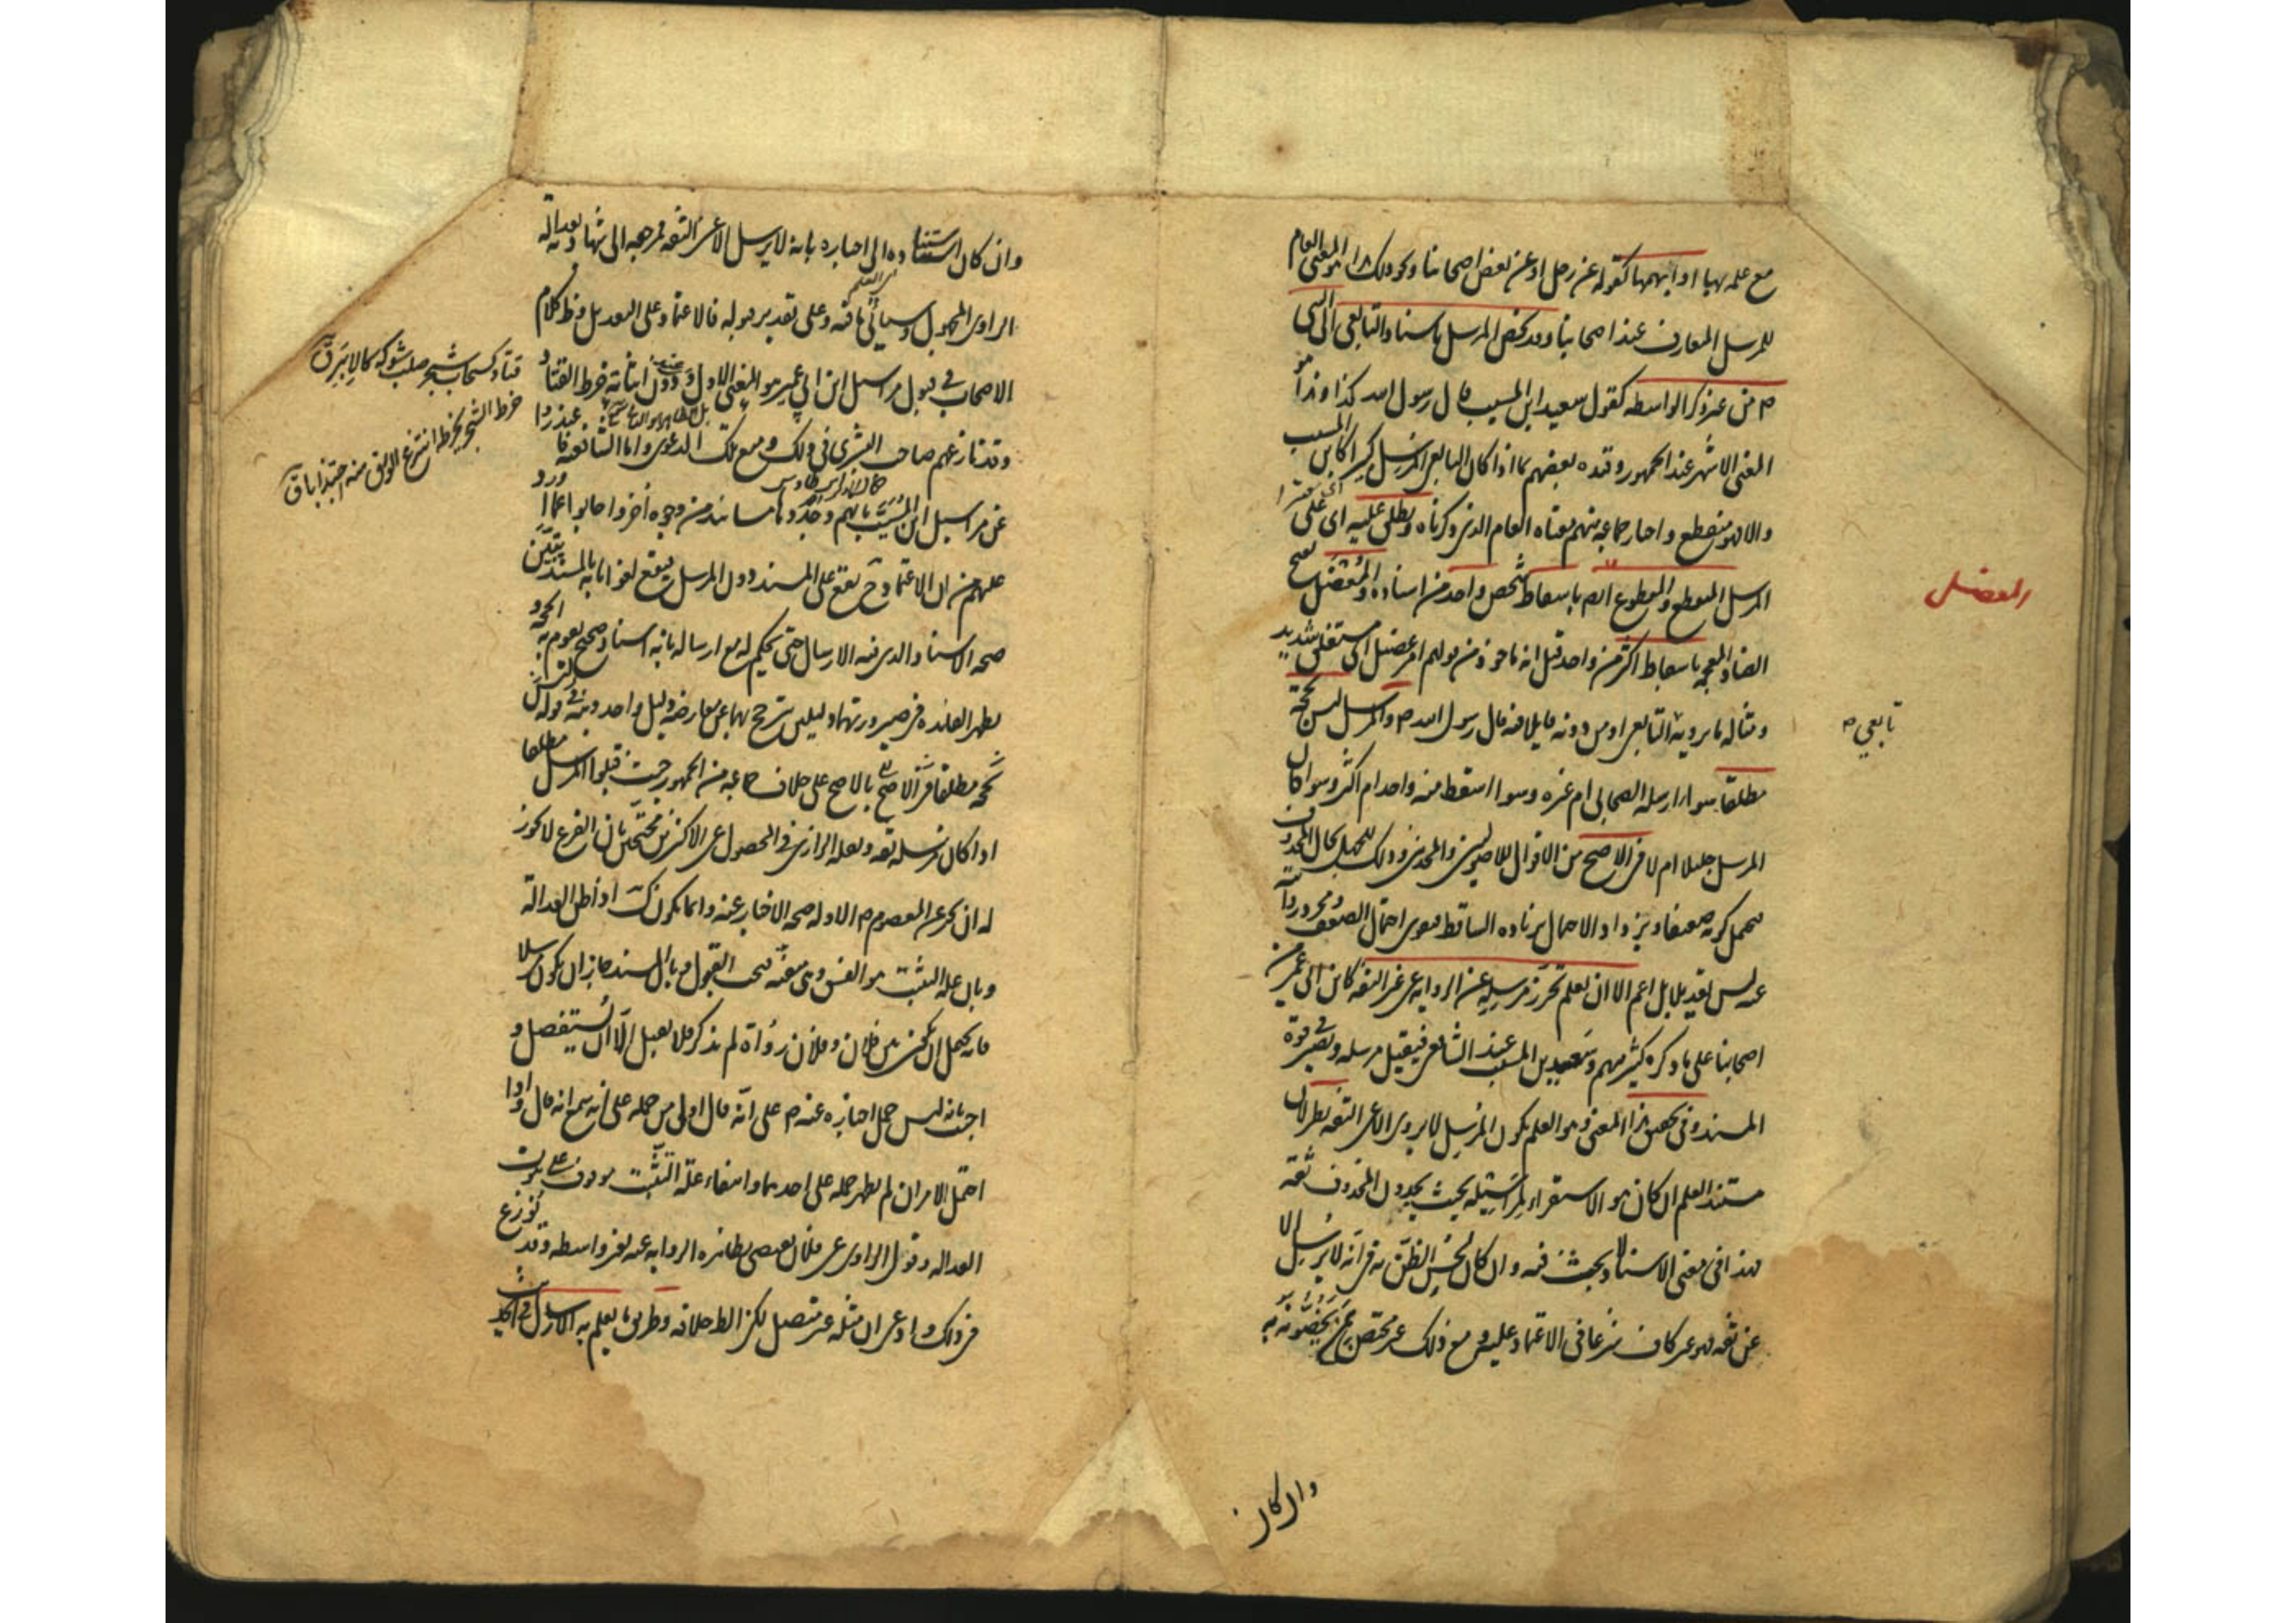 مع علمه بها او ابهمها كقوله عن رجل او عن بعض اصحابنا ونحو ذلك هذا هو المعنى العام
للمرسل المتعارف عند اصحابنا وقد يخص المرسل باسناد التابعي الى النبي
ص من غير ذكر الواسطه كقول سعيد ابن المسيب قال رسول الله كذا وهذا هو
المعنى الاشهر عند الجمهور وقيده بعضهم بما اذا كان التابعي المرسل كبيرا كابن المسيب
والا فهو منقطع واختار جماعه منهم معناه العام الذى ذكرناه ويطلق عليه اى على
المرسل المنقطع والمقطوع ايضا باسقاط شخص واحد من اسناده والمعضل بفتح
المعضل
الضاد المعجمه باسقاط اكثر من واحد قيل انه ماخوذ من قولهم امر عضيل اى مستغلق شديد
ومثاله ما يرويه التابعى او من دونه قايلا فيه قال رسول الله ص والمرسل ليس بحجة
تابعي
مطلقا سواء ارسله الصحابى ام غيره وسواء اسقط منه واحد ام اكثر وسوا كان
المرسل جليلا ام لا فى الاصح من الاقوال للاصوليين والمحدثين وذلك للجهل بحال المحذوف
فيحتمل كونه ضعيفا ويزداد الاحتمال بزيادة الساقط فيقوى احتمال الضعف ومجرد روايته
عنه ليس تعديلا بل اعم الا ان يعلم تحرز مرسله عن الروايه عن غير الثقه كابن ابى عمير من
اصحابنا على ما ذكره كثير منهم وسعيد بن المسيب عند الشافعى فيقبل مرسله ويصير فى قوة
المسند وفى تحقق هذا المعنى وهو العلم بكون المرسل لا يروى الا عن الثقه نظر لان
مستند العلم ان كان هو الاستقراء لمراسيله بحيث يجدون المحذوف ثقة
فهذا فى معنى الاسناد ولا بحث فيه وان كان لحسن الظن به فى انه لا يرسل الا
عن ثقه فهو غير كاف شرعا فى الاعتماد عليه ومع ذلك غير مختص بمن يخصونه به
وان كان
وان كان استناده الى اخباره بانه لا يرسل الا عن الثقه فمرجعه الى شهادته بعدالة
الراوى المجهول وسيأتى ما فيه وعلى تقدير قبوله فالاعتماد على التعديل وظ كلام
الاصحاب فى قبول مراسيل ابن ابى عمير هو المعنى الاول ودون اثباته خرط القتاد
قتاد كسحاب شجر صلب شوكه كالابر ق
وقد نازعهم صاحب البشرى فى ذلك ومنع تلك الدعوى واما الشافعيه فاعتذروا
خرط الشجر يخرطه انتزع الورق منه اجتذابا ق
عن مراسيل ابن المسيب بانهم وجدوها مسانيد من وجوه أخر واجابوا عما اورد
عليهم من ان الاعتماد ح يقع على المسند دون المرسل فيقع لغوا بانه بالمسند يتبين
صحه الاسناد الذى فيه الارسال حتى يحكم له مع ارساله بانه اسناد صحيح تقوم به الحجه و
يظهر الفائده فى صيرورتهما دليلين يرجح بهما عن معارضه دليل واحد ونبه فى قوله ليس
بحجه مطلقا فى الاصح بالاصح على خلاف جماعه من الجمهور حيث قبلوا المرسل مطلقا
اذا كان مرسله ثقه ونقله الرازى فى المحصول عن الاكثرين محتجين بان الفرع لا يجوز
له ان يخبر عن المعصوم ص الا وله صحه الاخبار عنه وانما يكون كك اذا ظن العدالة
وبان علة التثبت هو الفسق وهى منفيه فيجب القبول وبان المسند جاز ان يكون مرسلا
فانه يحتمل ان يكون بين فلان وفلان رواة لم يذكر فلا يقبل الا ان يستفصل و
اجيب بانه ليس حمل اخباره عنه ص على انه قال اولى من حمله على انه سمع انه قال واذا
احتمل الامران لم يظهر حمله على احدهما وانتفاء علة التثبت موقوف على ثبوت
العداله وقول الراوى عن فلان يقتضى بظاهره الروايه عنه بغير واسطه وقد نوزع
فى ذلك وادعى ان مثله غير متصل لكن الظ خلافه وطريق ما يعلم به الارسال فى الحديث